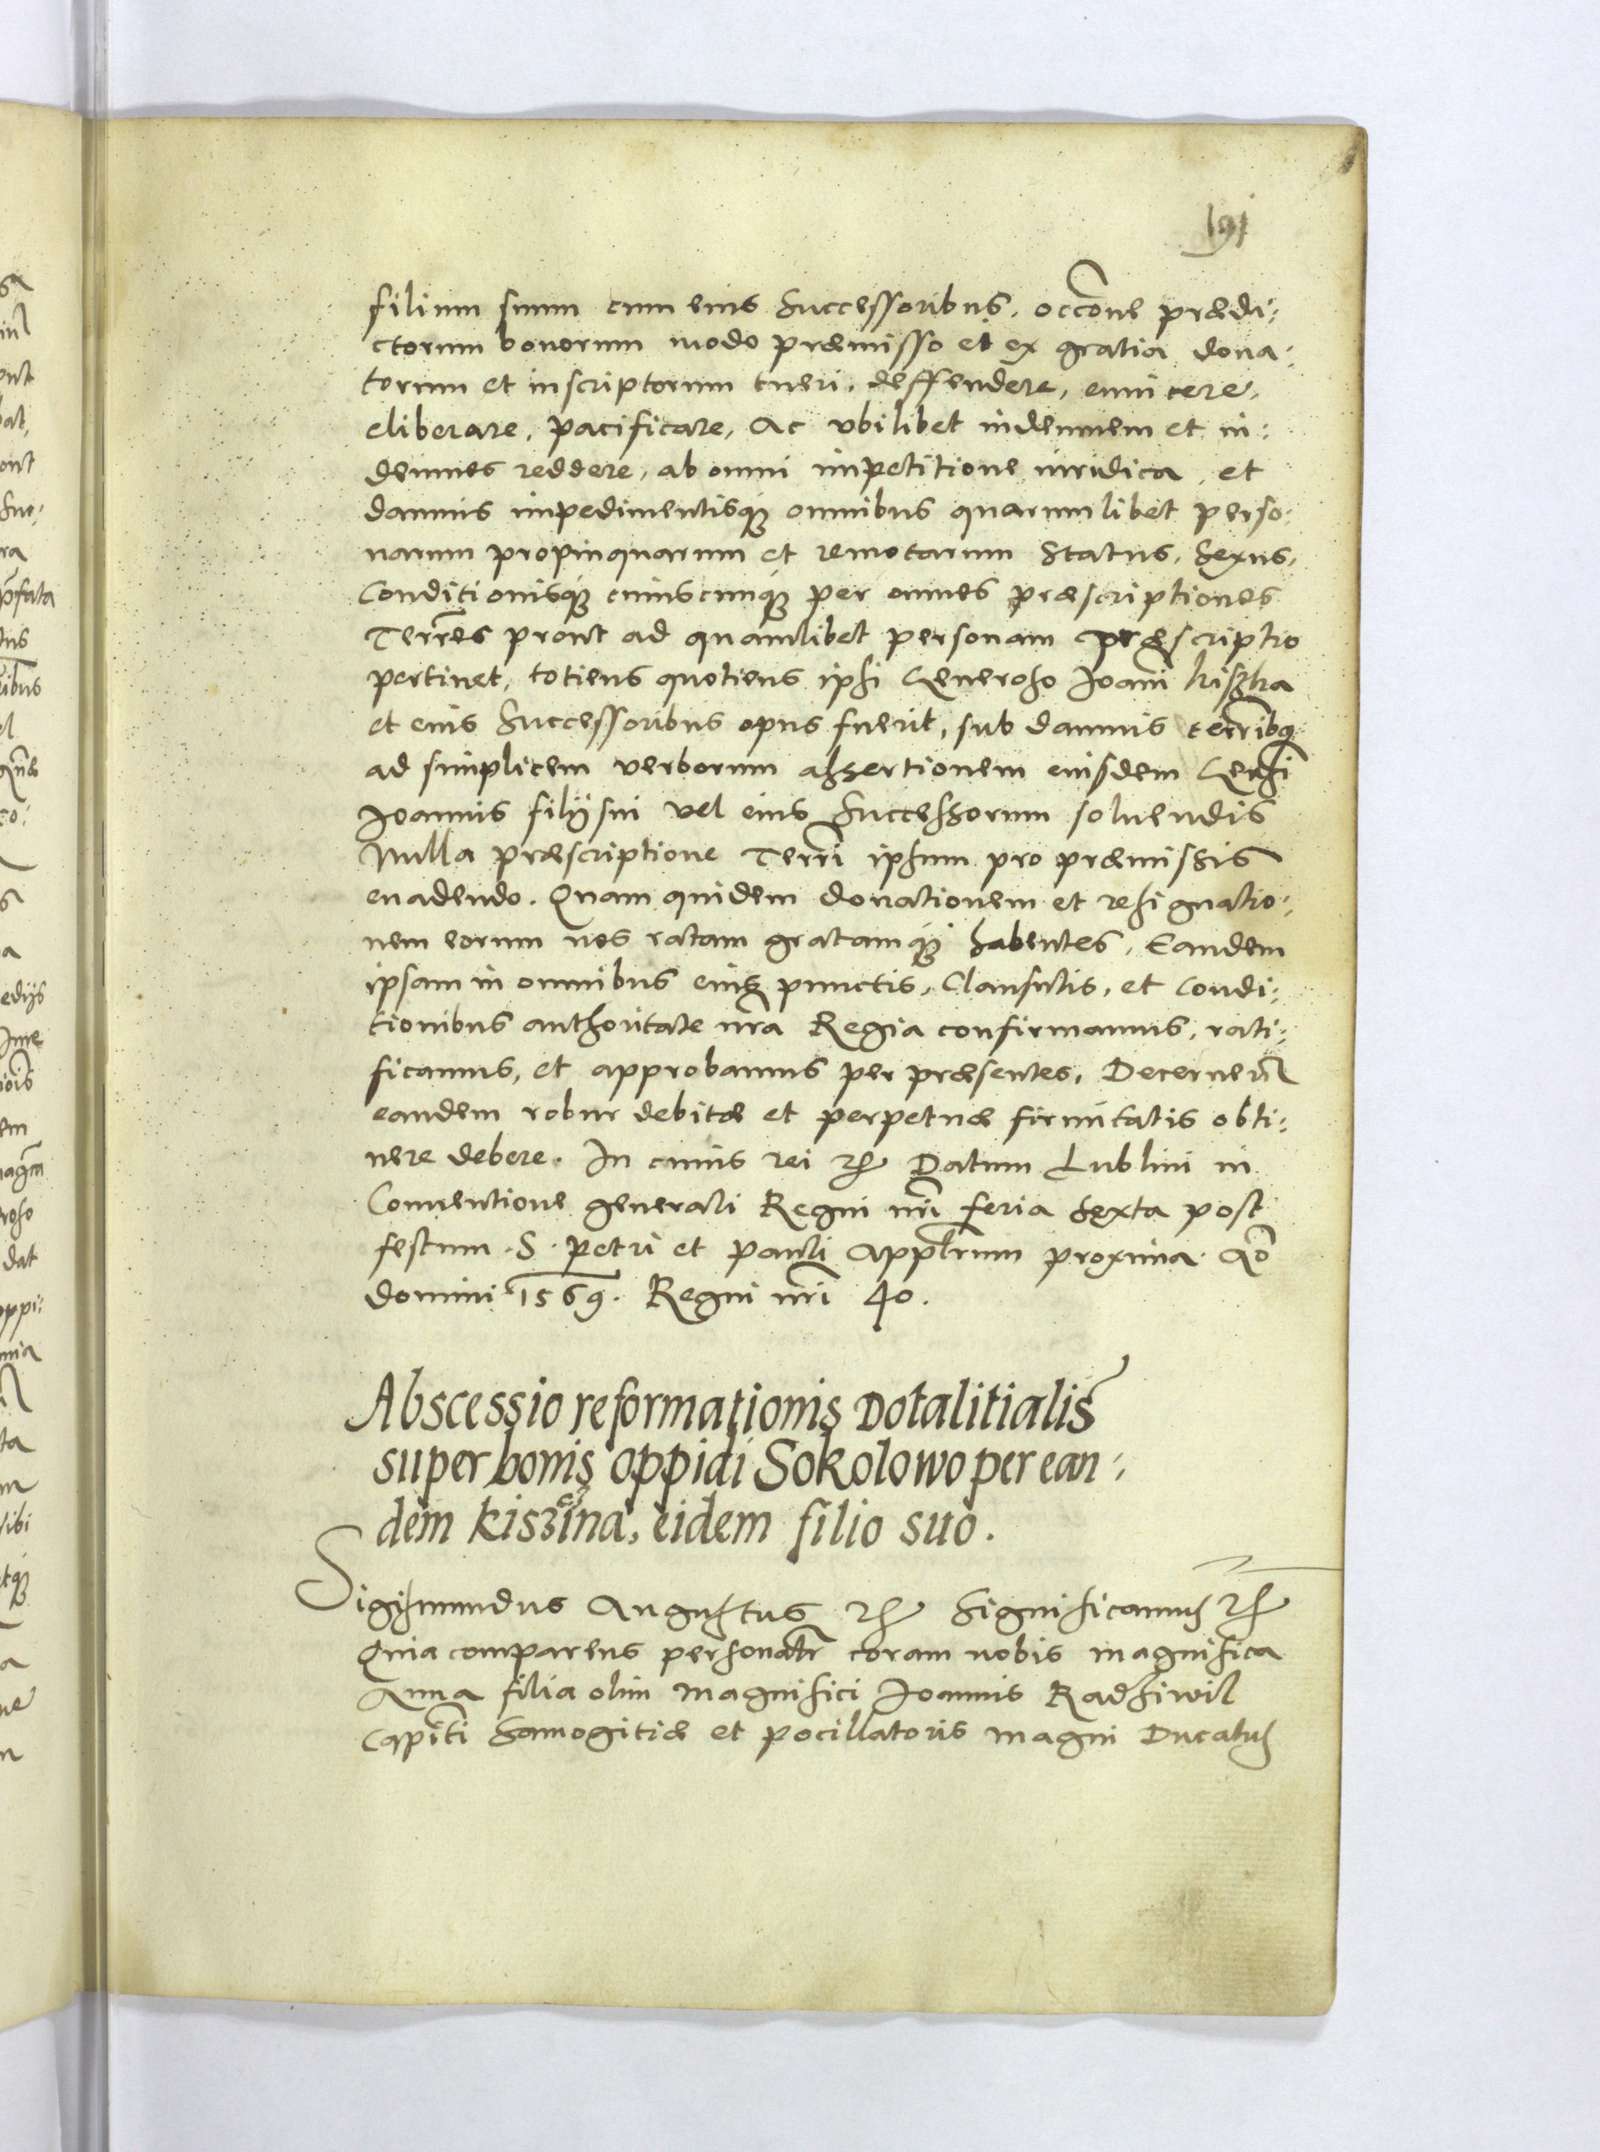 191
filium suum cum eius Successoribus, occōne prædi:
ctorum bonorum modo præmisso et ex gratia dona:
torum et inscriptorum tueri, deffendere, euincere,
eliberare, pacificare, Ac vbilibet indemnem et in:
demnes reddere, ab omni impetitione iuridica, et
damnis impedimentisq3 omnibus quarumlibet perso:
narum propinquarum et remotarum Status, Sexus,
Conditionisq3 cuiuscunq3 per omnes præscriptiones
Terrēs prout ad quamlibet personam præscriptio
pertinet, totiens quotiens ipsi Generoso Joanni kiszka
et eius Successoribus opus fuerit, sub damnis terribq
ad simplicem verborum assertionem eiusdem Gensi
Joannis filij sui vel eius Successorum soluendis
Nulla præscriptione Terri ipsum pro præmissis
euadendo. Quam quidem donationem et resignatio:
nem eorum nos ratam gratamq3 habentes, Eandem
ipsam in omnibus eius punctis, Clausulis, et Condi:
tionibus authoritate nra Regia confirmamus, rati:
ficamus, et approbamus per præsentes, Decernen
eandem robur debitæ et perpetuæ firmitatis obti:
nere debere. In cuius rei etc Datum Lublini in
Conuentione generali Regni nri feria Sexta post
festum S. Petri et Pauli Appłrum proxima Ao
domini 1569. Regni nri 40.
Abscessio reformationis Dotalitialis
super bonis oppidi Sokolowo per ean:
dem kiszcina, eidem filio suo.
Sigismundus Augustus etc Significamus etc
Quia comparens personatr coram nobis magnifica
Anna filia olim Magnifici Joannis Radziwil
Capiti Samogitiæ et pocillatoris Magni Ducatus